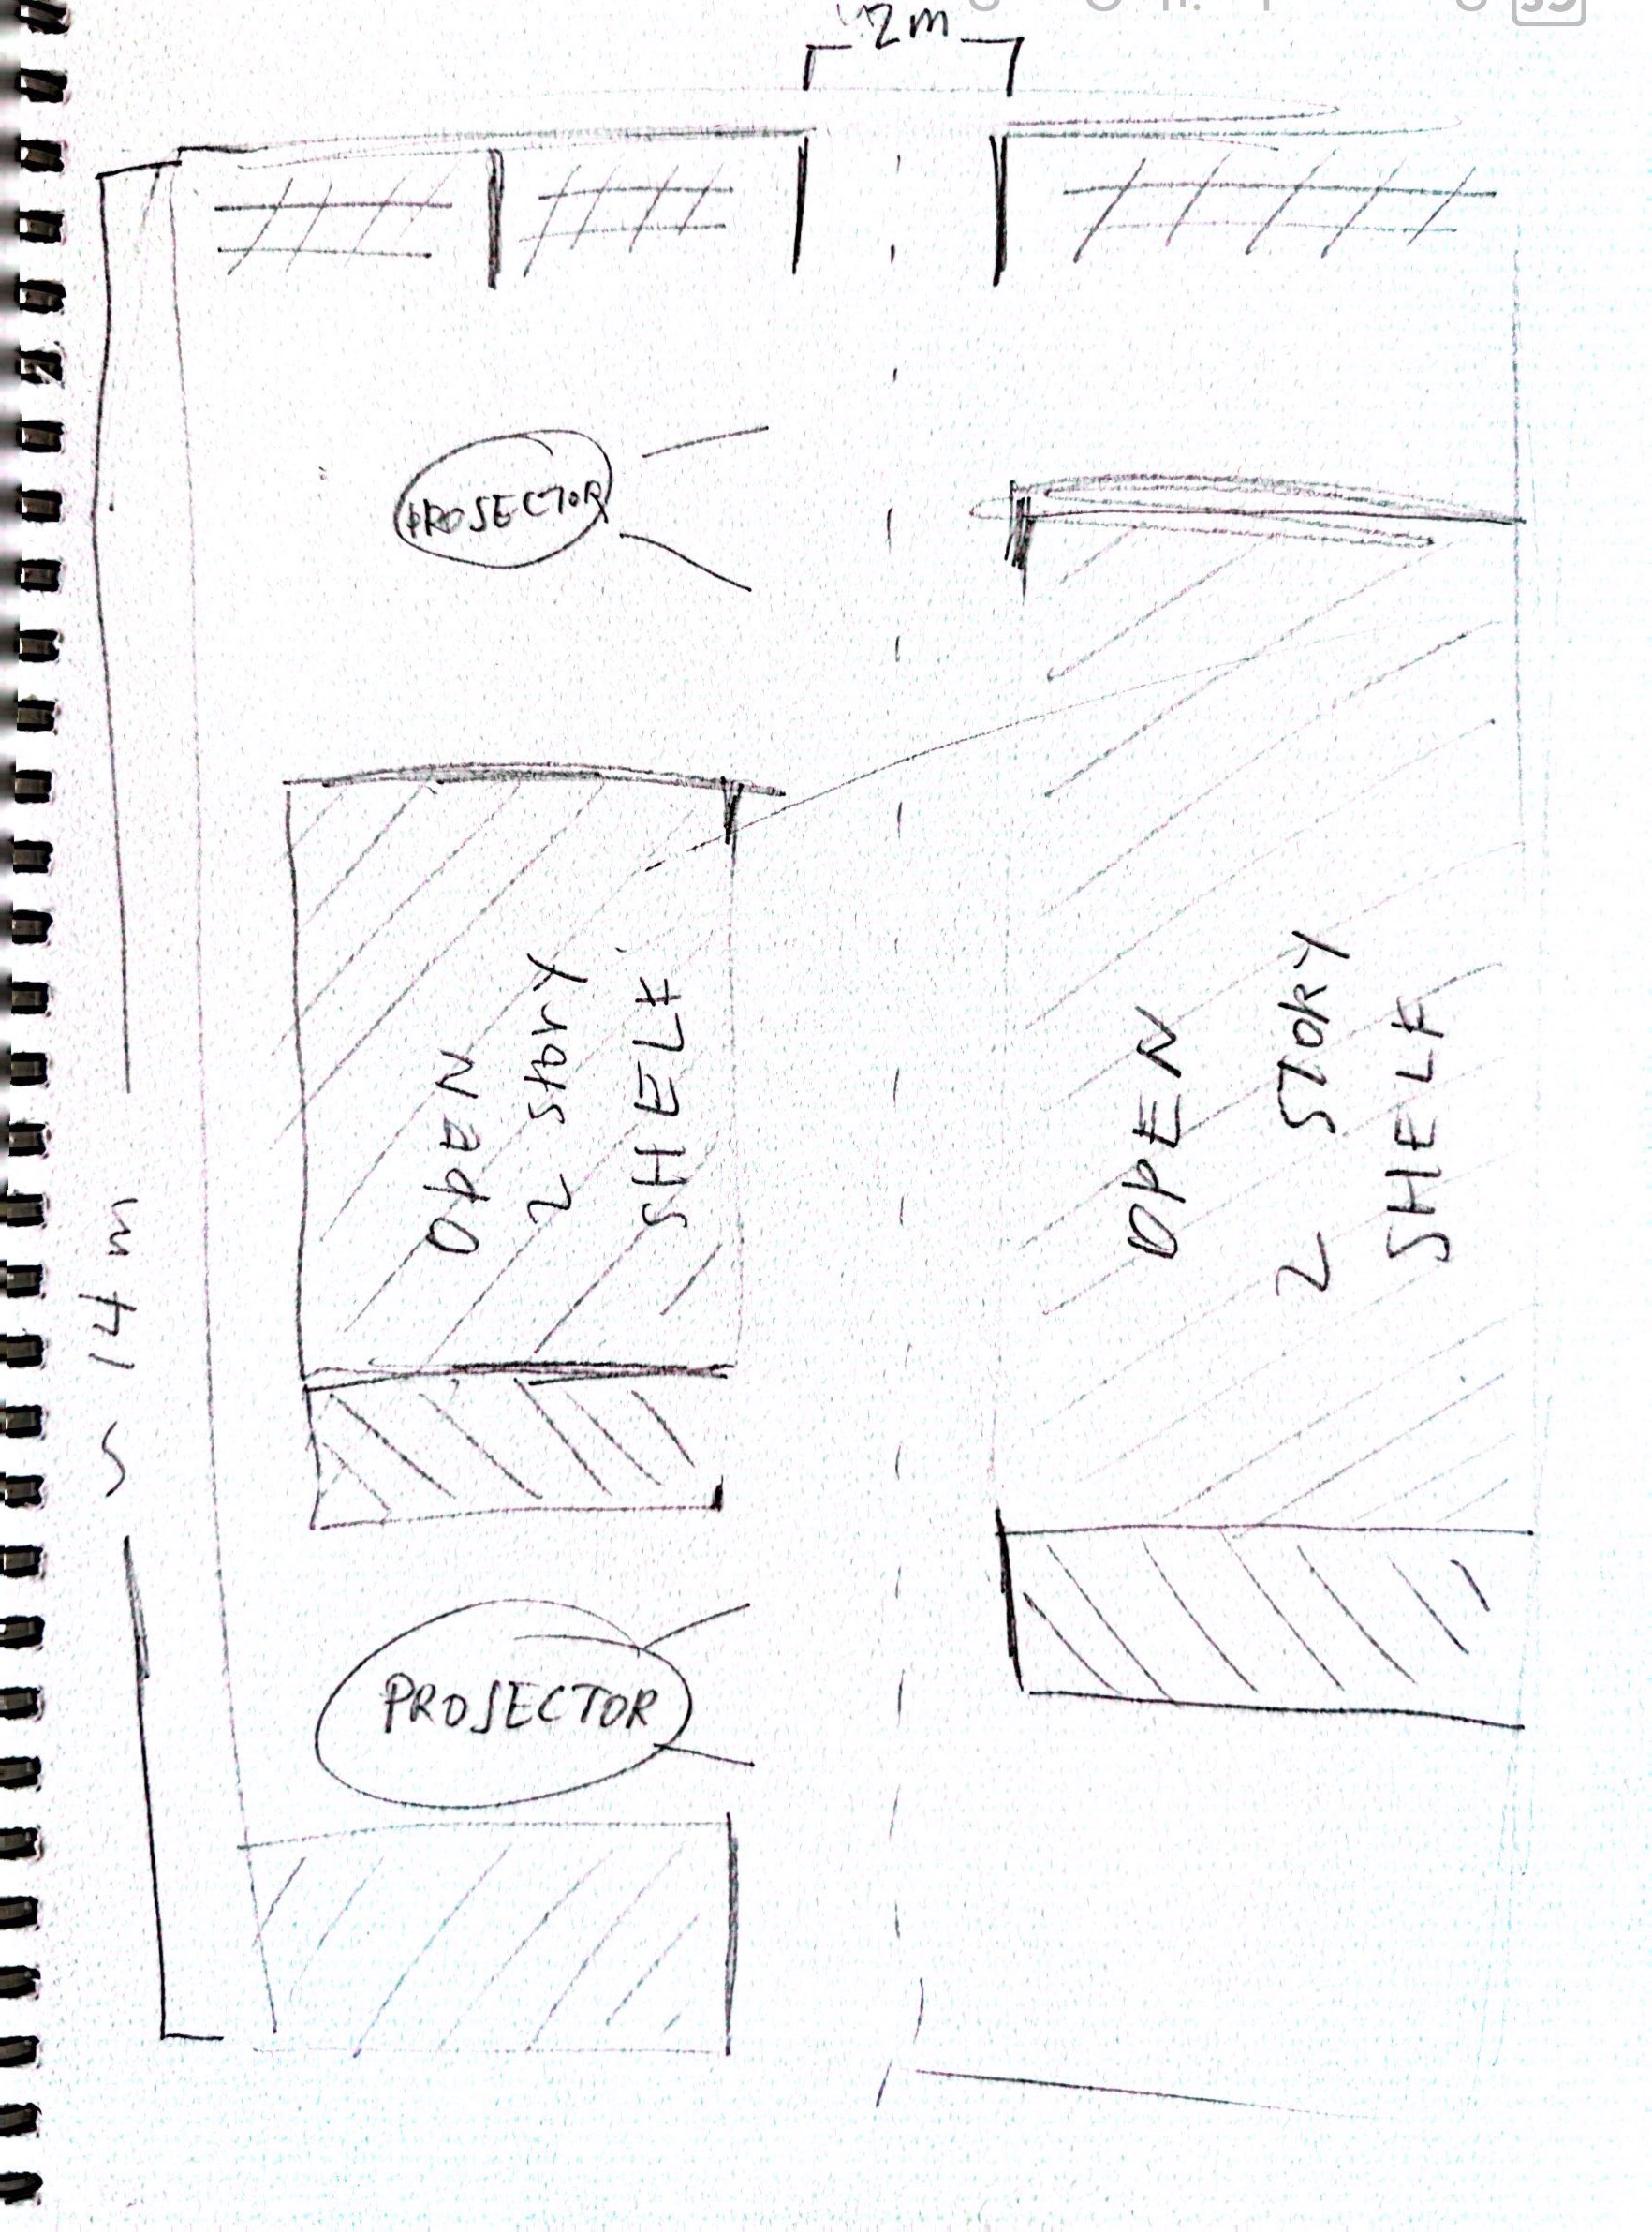 2m
PROJECTOR
OPEN
2 StorY
SHELF
OPEN
2 STORY
SHELF
~ 14 m
PROJECTOR